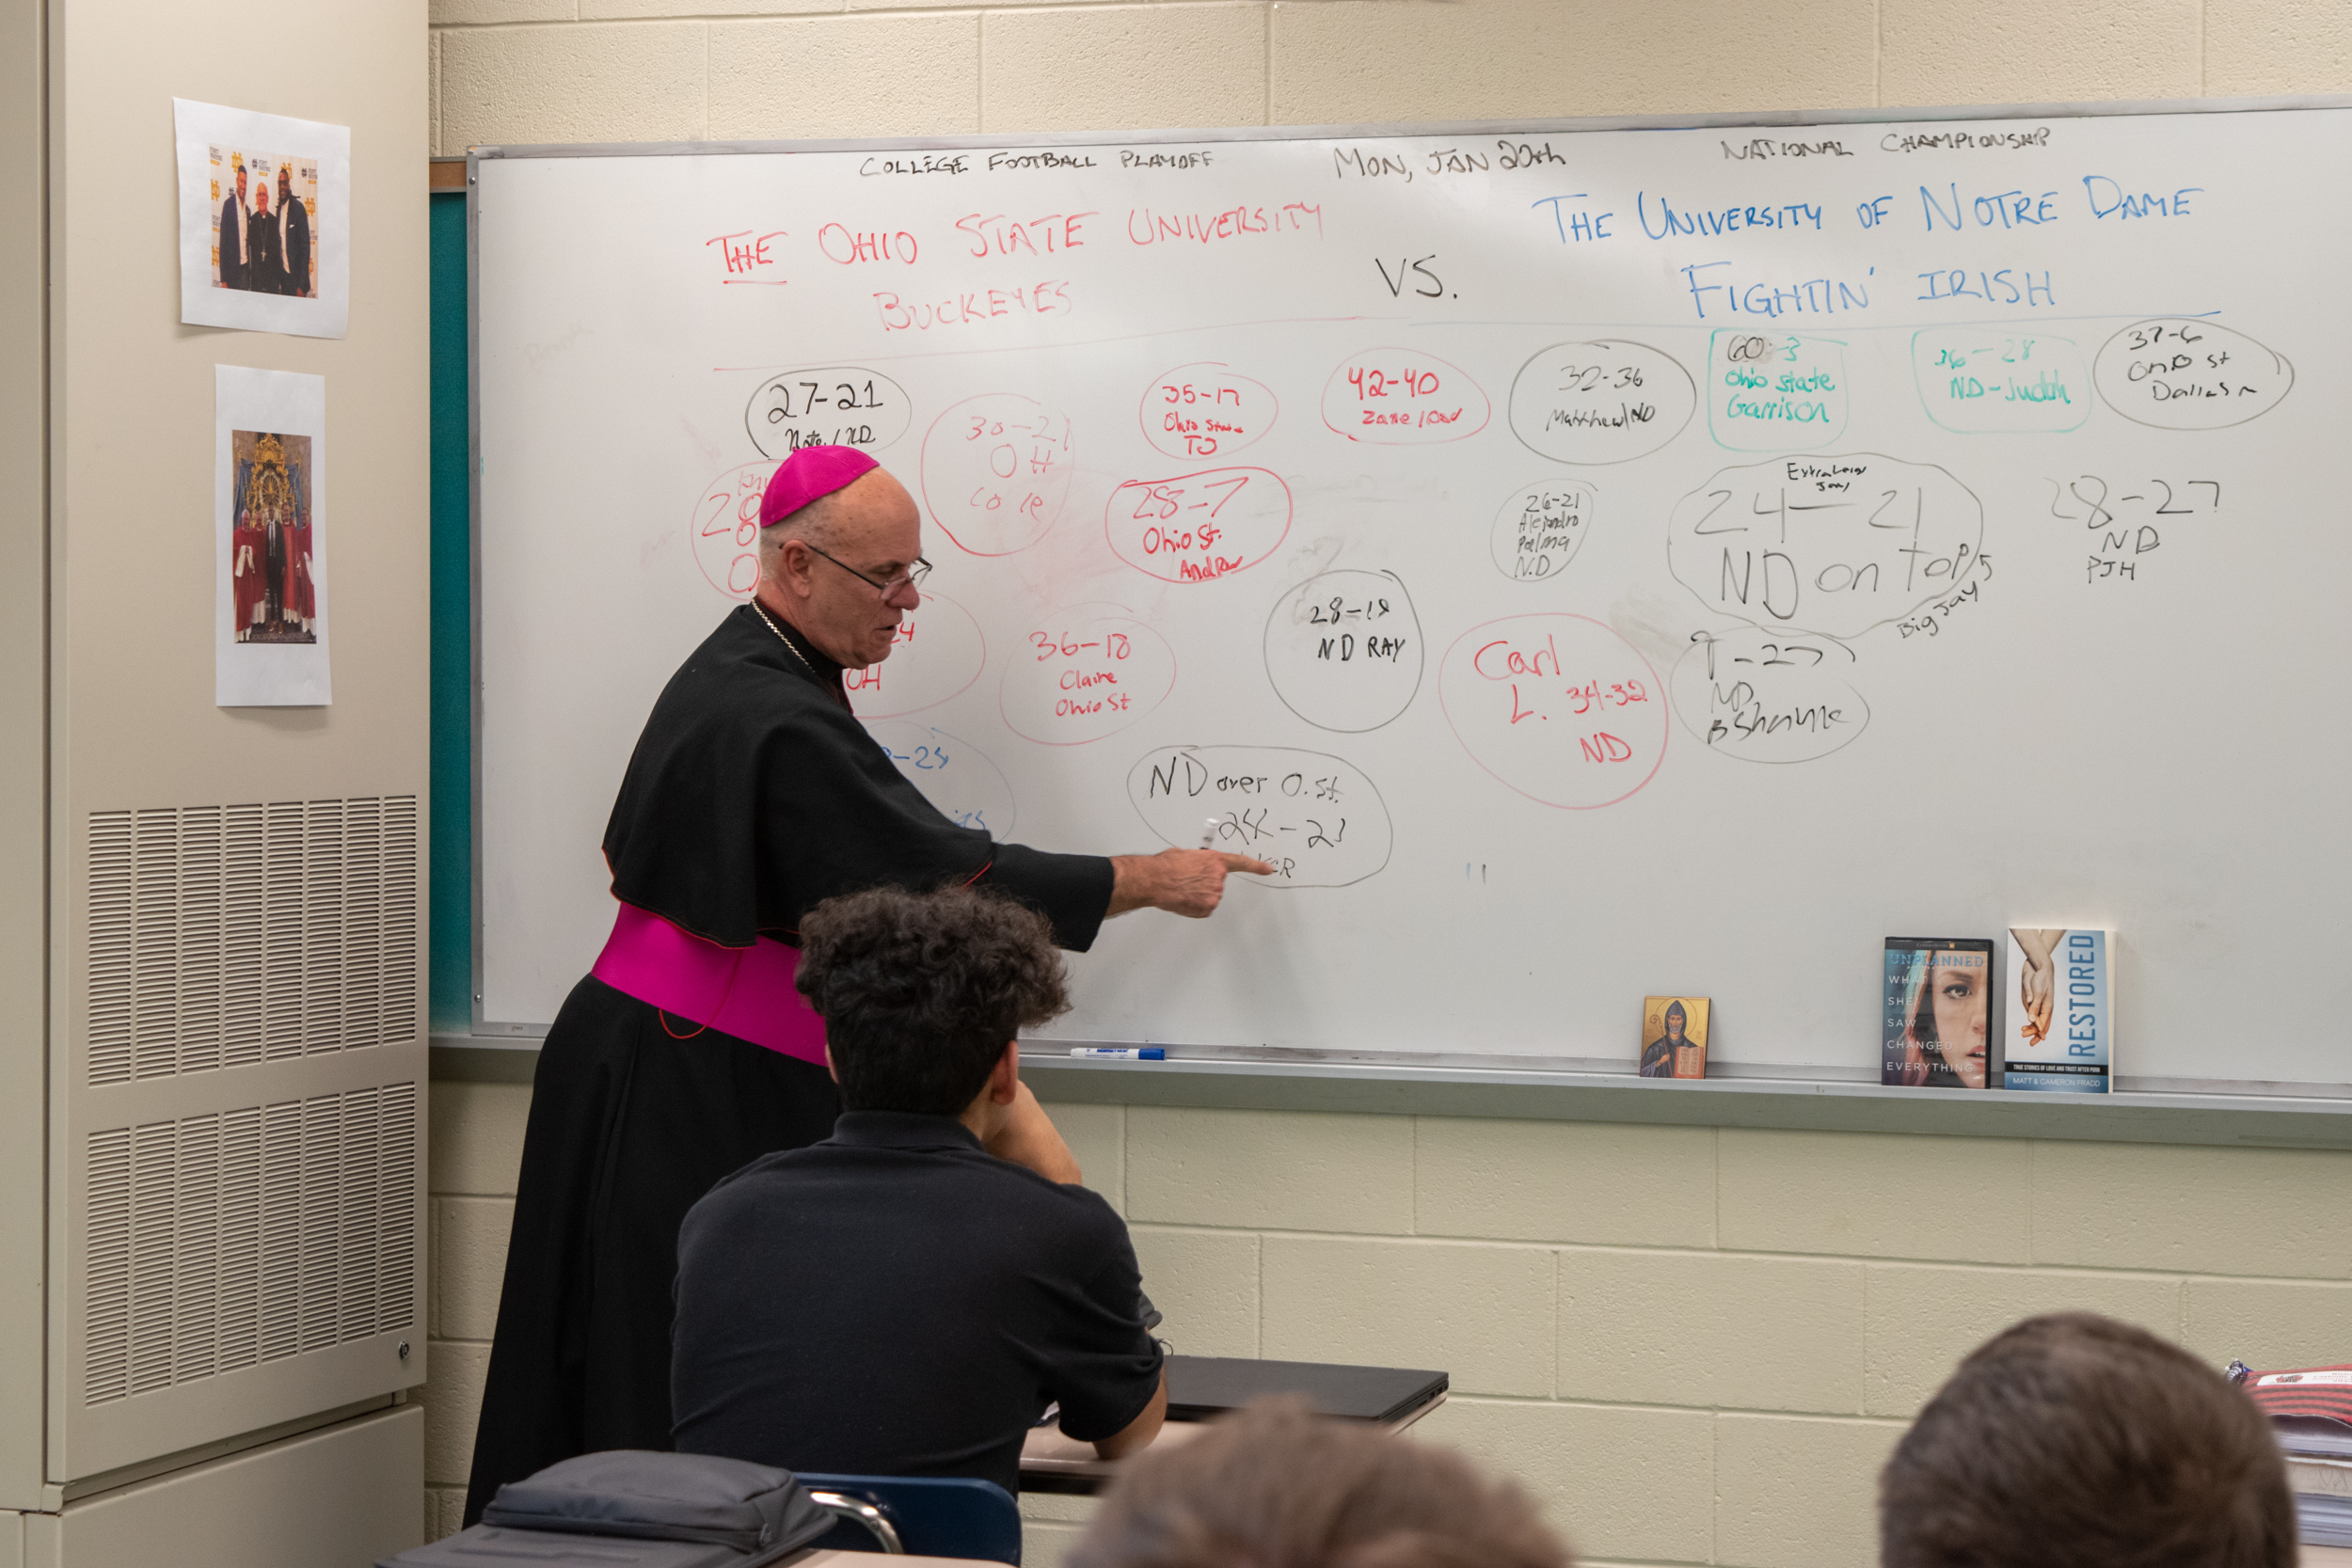 COLLEGE FOOTBALL PLAYOFF
MON, JAN 20th
NATIONAL CHAMPIONSHIP
THE OHIO STATE UNIVERSITY
BUCKEYES
VS.
THE UNIVERSITY OF NOTRE DAME
FIGHTIN' IRISH
27-21
Nate / ND
30-21
OH
Cole
35-17
Ohio State
TJ
42-40
Zane /
32-36
Matthew/ND
60-3
Ohio State
Garrison
36-28
ND-Judah
37-6
Ohio St
Dallas
28-7
Ohio St.
Andrew
26-21
Alejandro
Palma
N.D
24-21
ND on top
Big Jay
28-27
ND
PJH
36-18
Claire
Ohio St
OH
28-19
ND RAY
Carl
L. 34-32
ND
-27
ND
ND over O.St.
UNPLANNED
WHAT
SHE
SAW
CHANGED
EVERYTHING
RESTORED
TRUE STORIES OF LOVE AND TRUST AFTER PORN
MATT & CAMERON FRADD